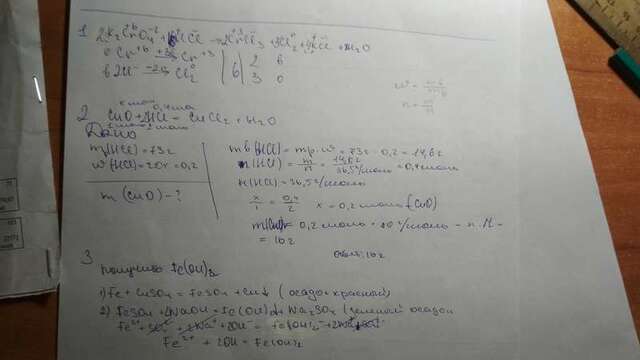 1 2K₂CrO₄ + HCl → 2CrCl₃ + 3Cl₂ + 4KCl + H₂O
Cr⁺⁶ +3e → Cr⁺³ | 6 | 2
2Cl⁻ -2e → Cl₂⁰ 3
2 x моль 0,4 моль
CuO + 2HCl = CuCl₂ + H₂O
Дано
m(HCl) = 73г
w(HCl) = 20% = 0,2
m (CuO) - ?
m в (HCl) = mр · w = 73г · 0,2 = 14,6 г
n(HCl) = m/M = 14,6г / 36,5г/моль = 0,4 моль
M(HCl) = 36,5г/моль
x/1 = 0,4/2 x = 0,2 моль (CuO)
m(CuO) = 0,2 моль · 80г/моль - n · M -
= 16г
Ответ: 16г
3 получить Fe(OH)₂
1) Fe + CuSO₄ = FeSO₄ + Cu↓ ( осадок красный)
2) FeSO₄ + 2NaOH = Fe(OH)₂↓ + Na₂SO₄ ( осадок
Fe²⁺ + SO₄²⁻ + 2Na⁺ + 2OH⁻ = Fe(OH)₂ + 2Na⁺
Fe²⁺ + 2OH = Fe(OH)₂